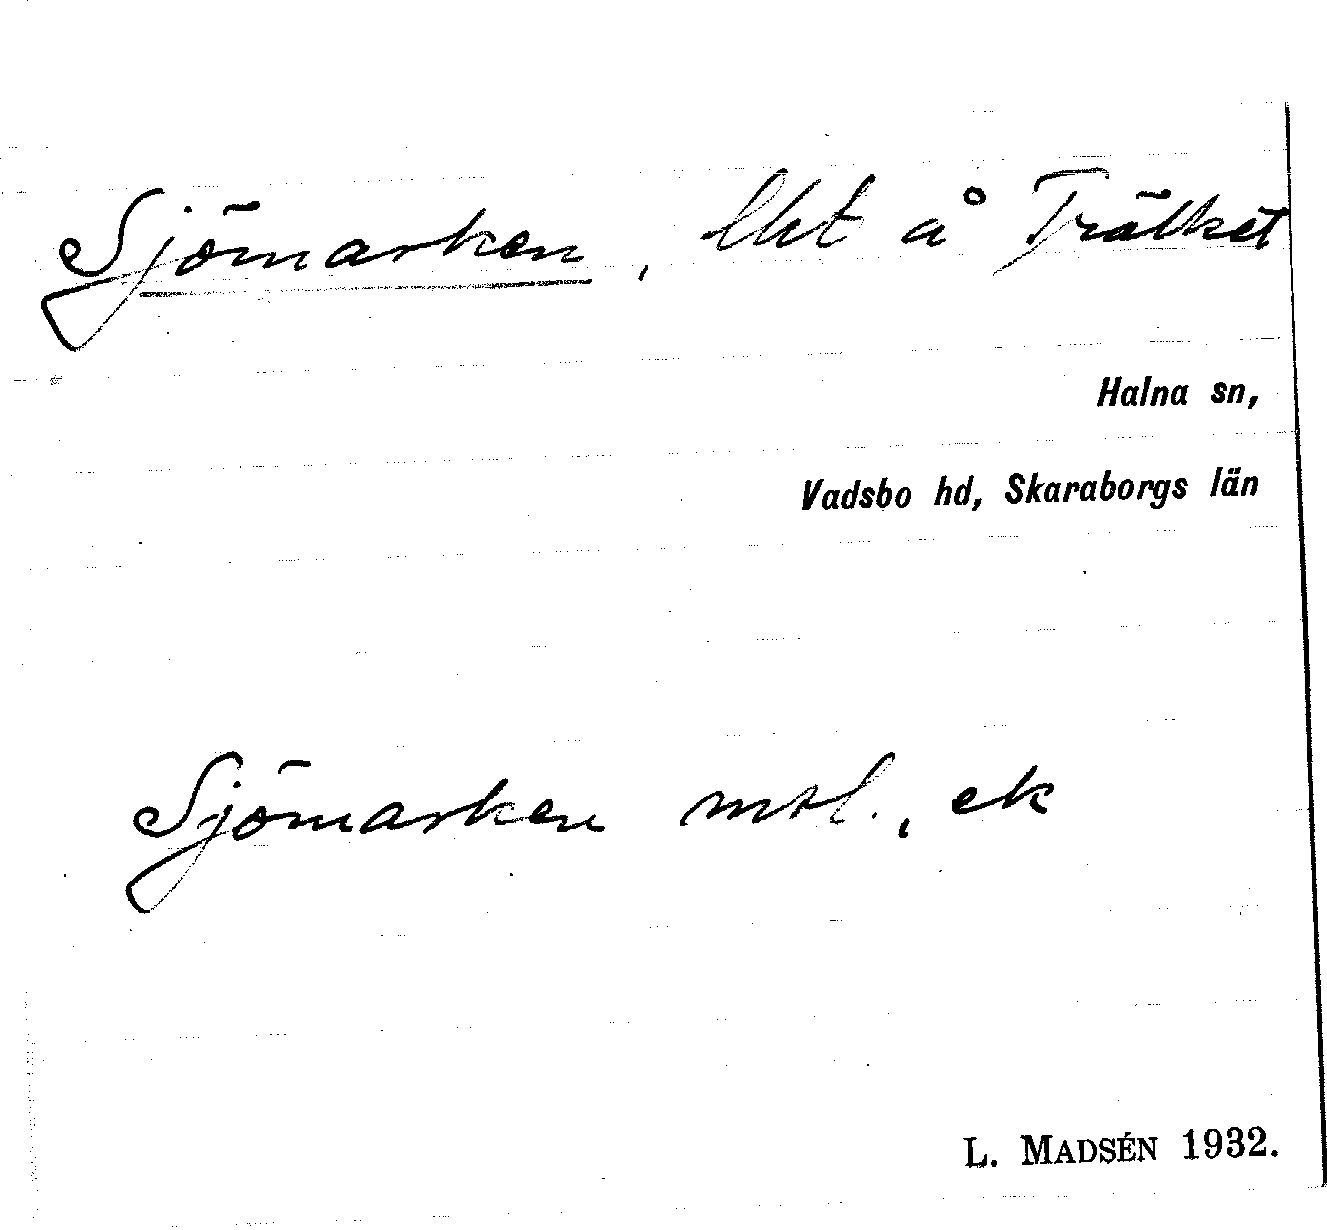 Sjömarken, lht å Trälket
Halna sn,
Vadsbo hd, Skaraborgs län
Sjömarken mtl., ek
L. MADSÉN 1932.